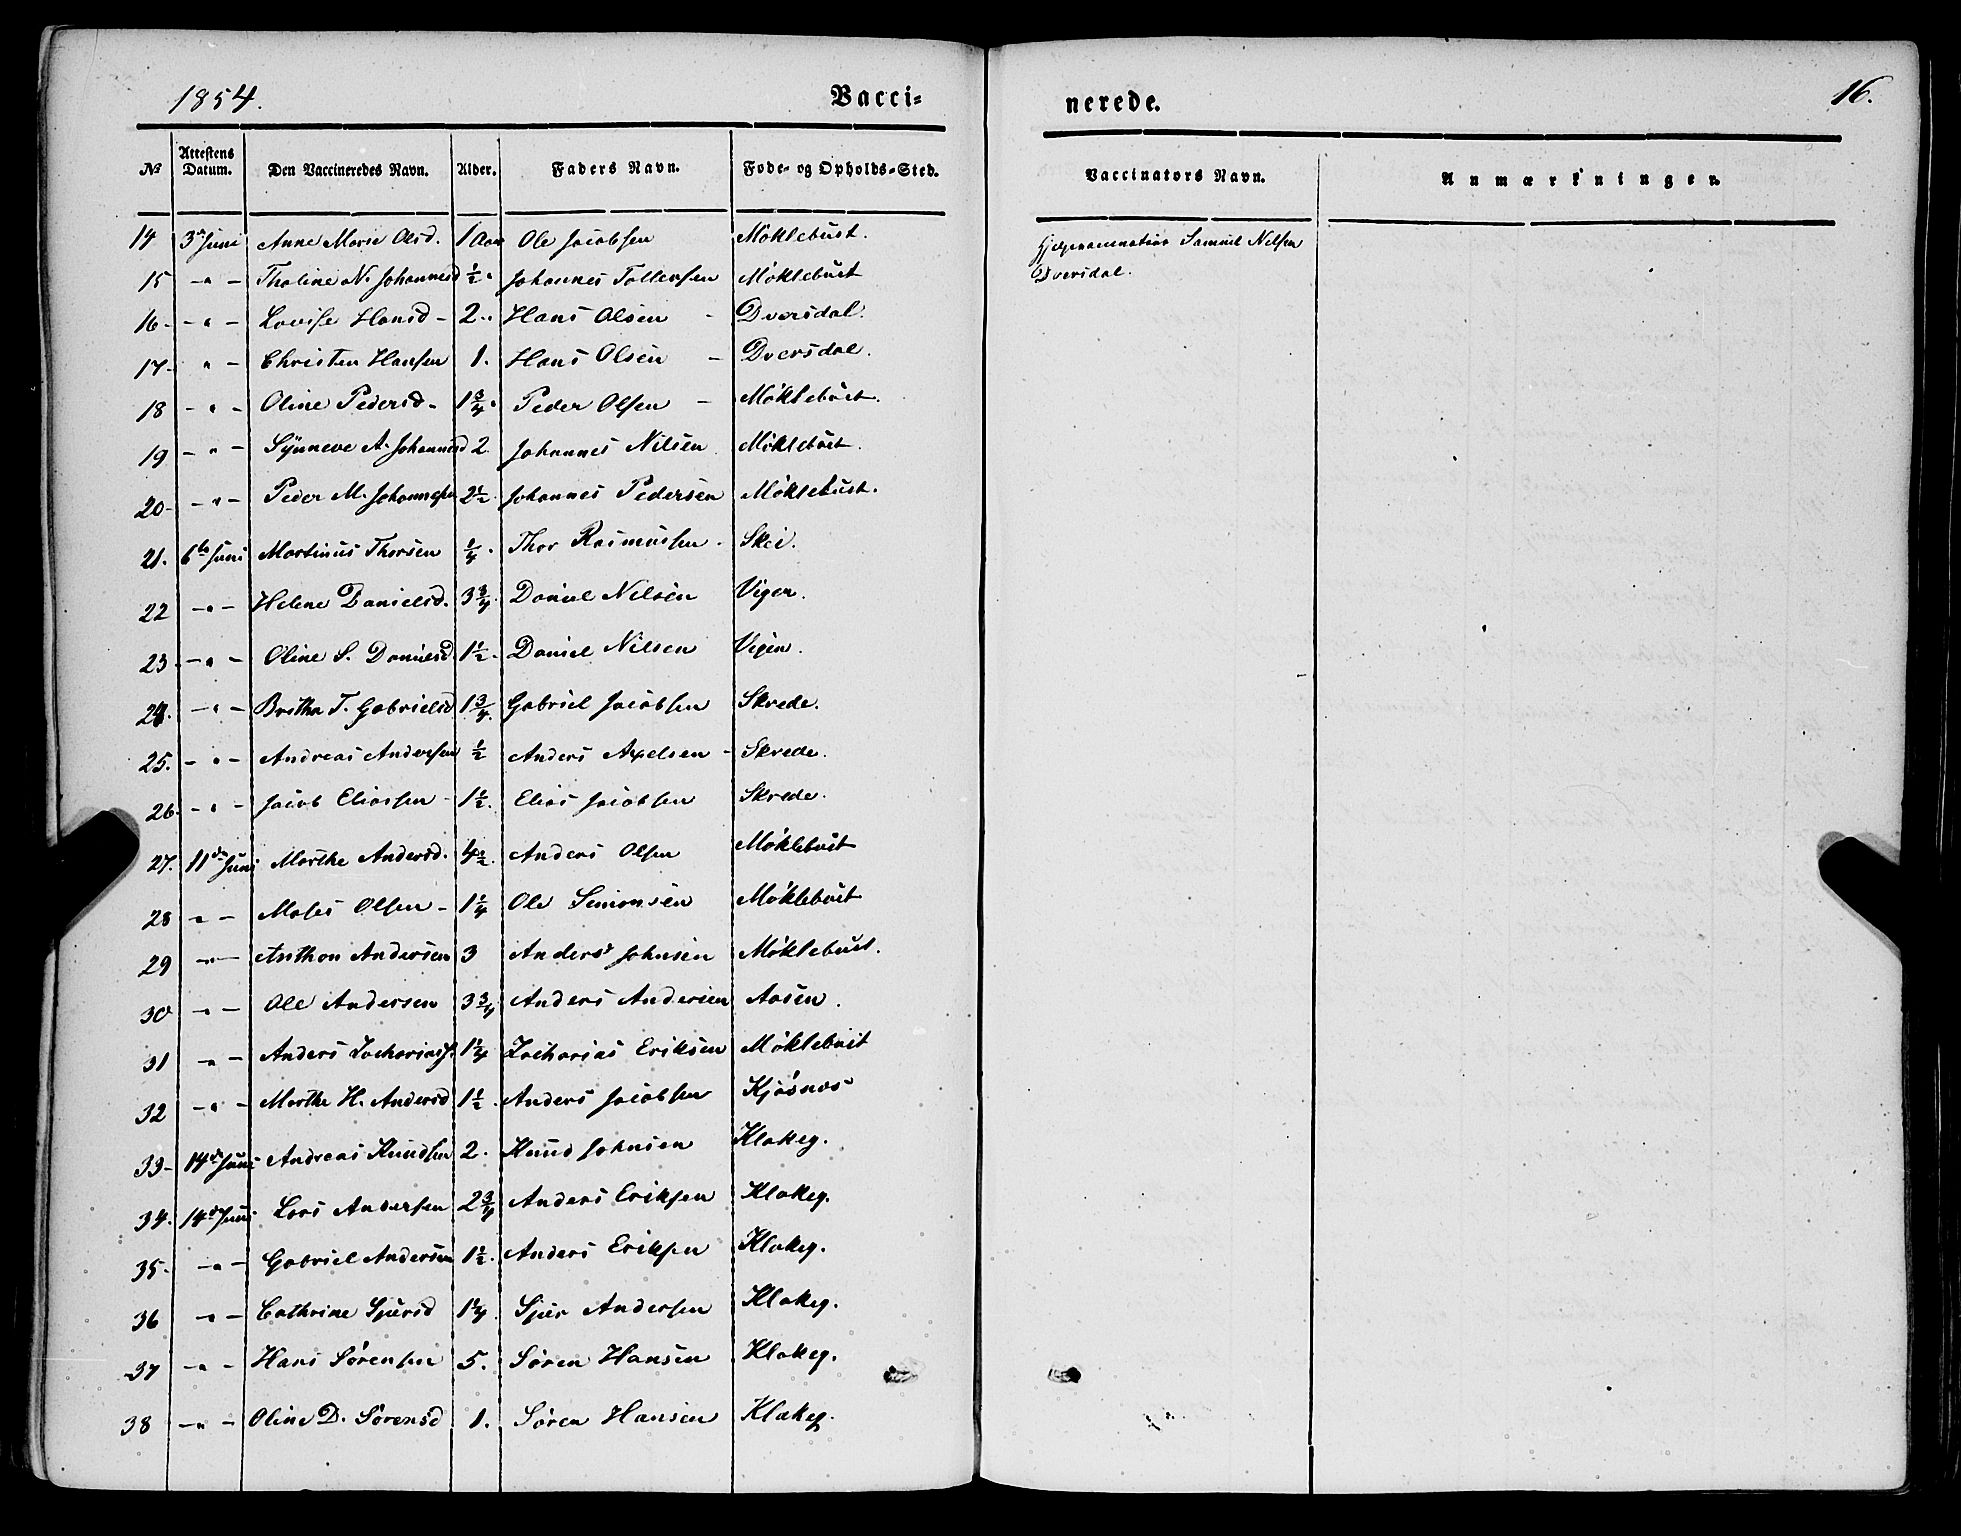 1854. Vacci= nerede. 16.
№ Attestens Datum. Den Vaccineredes Navn. Alder. Faders Navn. Føde- og Opholds-Sted. Vaccinators Navn. Anmærkninger.
14 3de Juni Anne Marie Olsd. 1 Aar Ole Jacobsen Møklebust. Samuel Nilsen
15 -"- Thaline N. Johannesd ½. Johannes Tollevsen Møklebust Dversdal.
16- -"- Lovise Hansd- 2.. Hans Olsen - Dversdal.
17- " - Christen Hansen 1. Hans Olsen - Dversdal.
18 -"- Oline Pedersd- 1¾. Peder Olsen - Møklebust.
19 -"- Synneve A. Johannesd 2. Johannes Nilsen Møklebust.
20- -"- Peder M. Johannesen 2½. Johannes Pedersen Møklebust.
21. 6te Juni Martinus Thorsen ¼. Thor Rasmussen - Skei.
22 -"- Helene Danielsd. 3¾. Daniel Nilsen Vigen.
23. -"- Oline S. Danielsd. 1½. Daniel Nilsen Vigen.
24. -"- Brithe T. Gabrielsd 1¾. Gabriel Jacobsen Skrede.
25. -"- Andreas Andersen ½ Anders Axelsen - Skrede.
26. -"- Jacob Eliassen - 1½. Elias Jacobsen Skrede.
27. 11de Juni Marthe Andersd. 4½. Anders Olsen Møklebust
28 " - Moses Olsen - 1¼ Ole Simonsen Møklebust
29 -"- Anthon Andersen 3 Anders Johnsen Møklebust.
30 -"- Ole Andersen 3¾ Anders Andersen Aasen.
31 " - Anders Zachariass. 1¼ Zacharias Eriksen Møklebust
32 -"- Marthe H. Andersd 1½. Anders Jacobsen Kjøsnæs
33- 14de Juni Andreas Knudsen 2. Knud Johnsen Klakeg.
34. 14de Juni Lars Andersen 2¾ Anders Eriksen Klakeg.
35- -"- Gabriel Andersen 1½. Anders Eriksen Klakeg.
36 -"- Cathrine Sjursd 1¼. Sjur Andersen Klakeg.
37 -"- Hans Sørensen 5. Søren Hansen Klakeg.
38 -"- Oline D. Sørensd 1. Søren Hansen Klakeg.